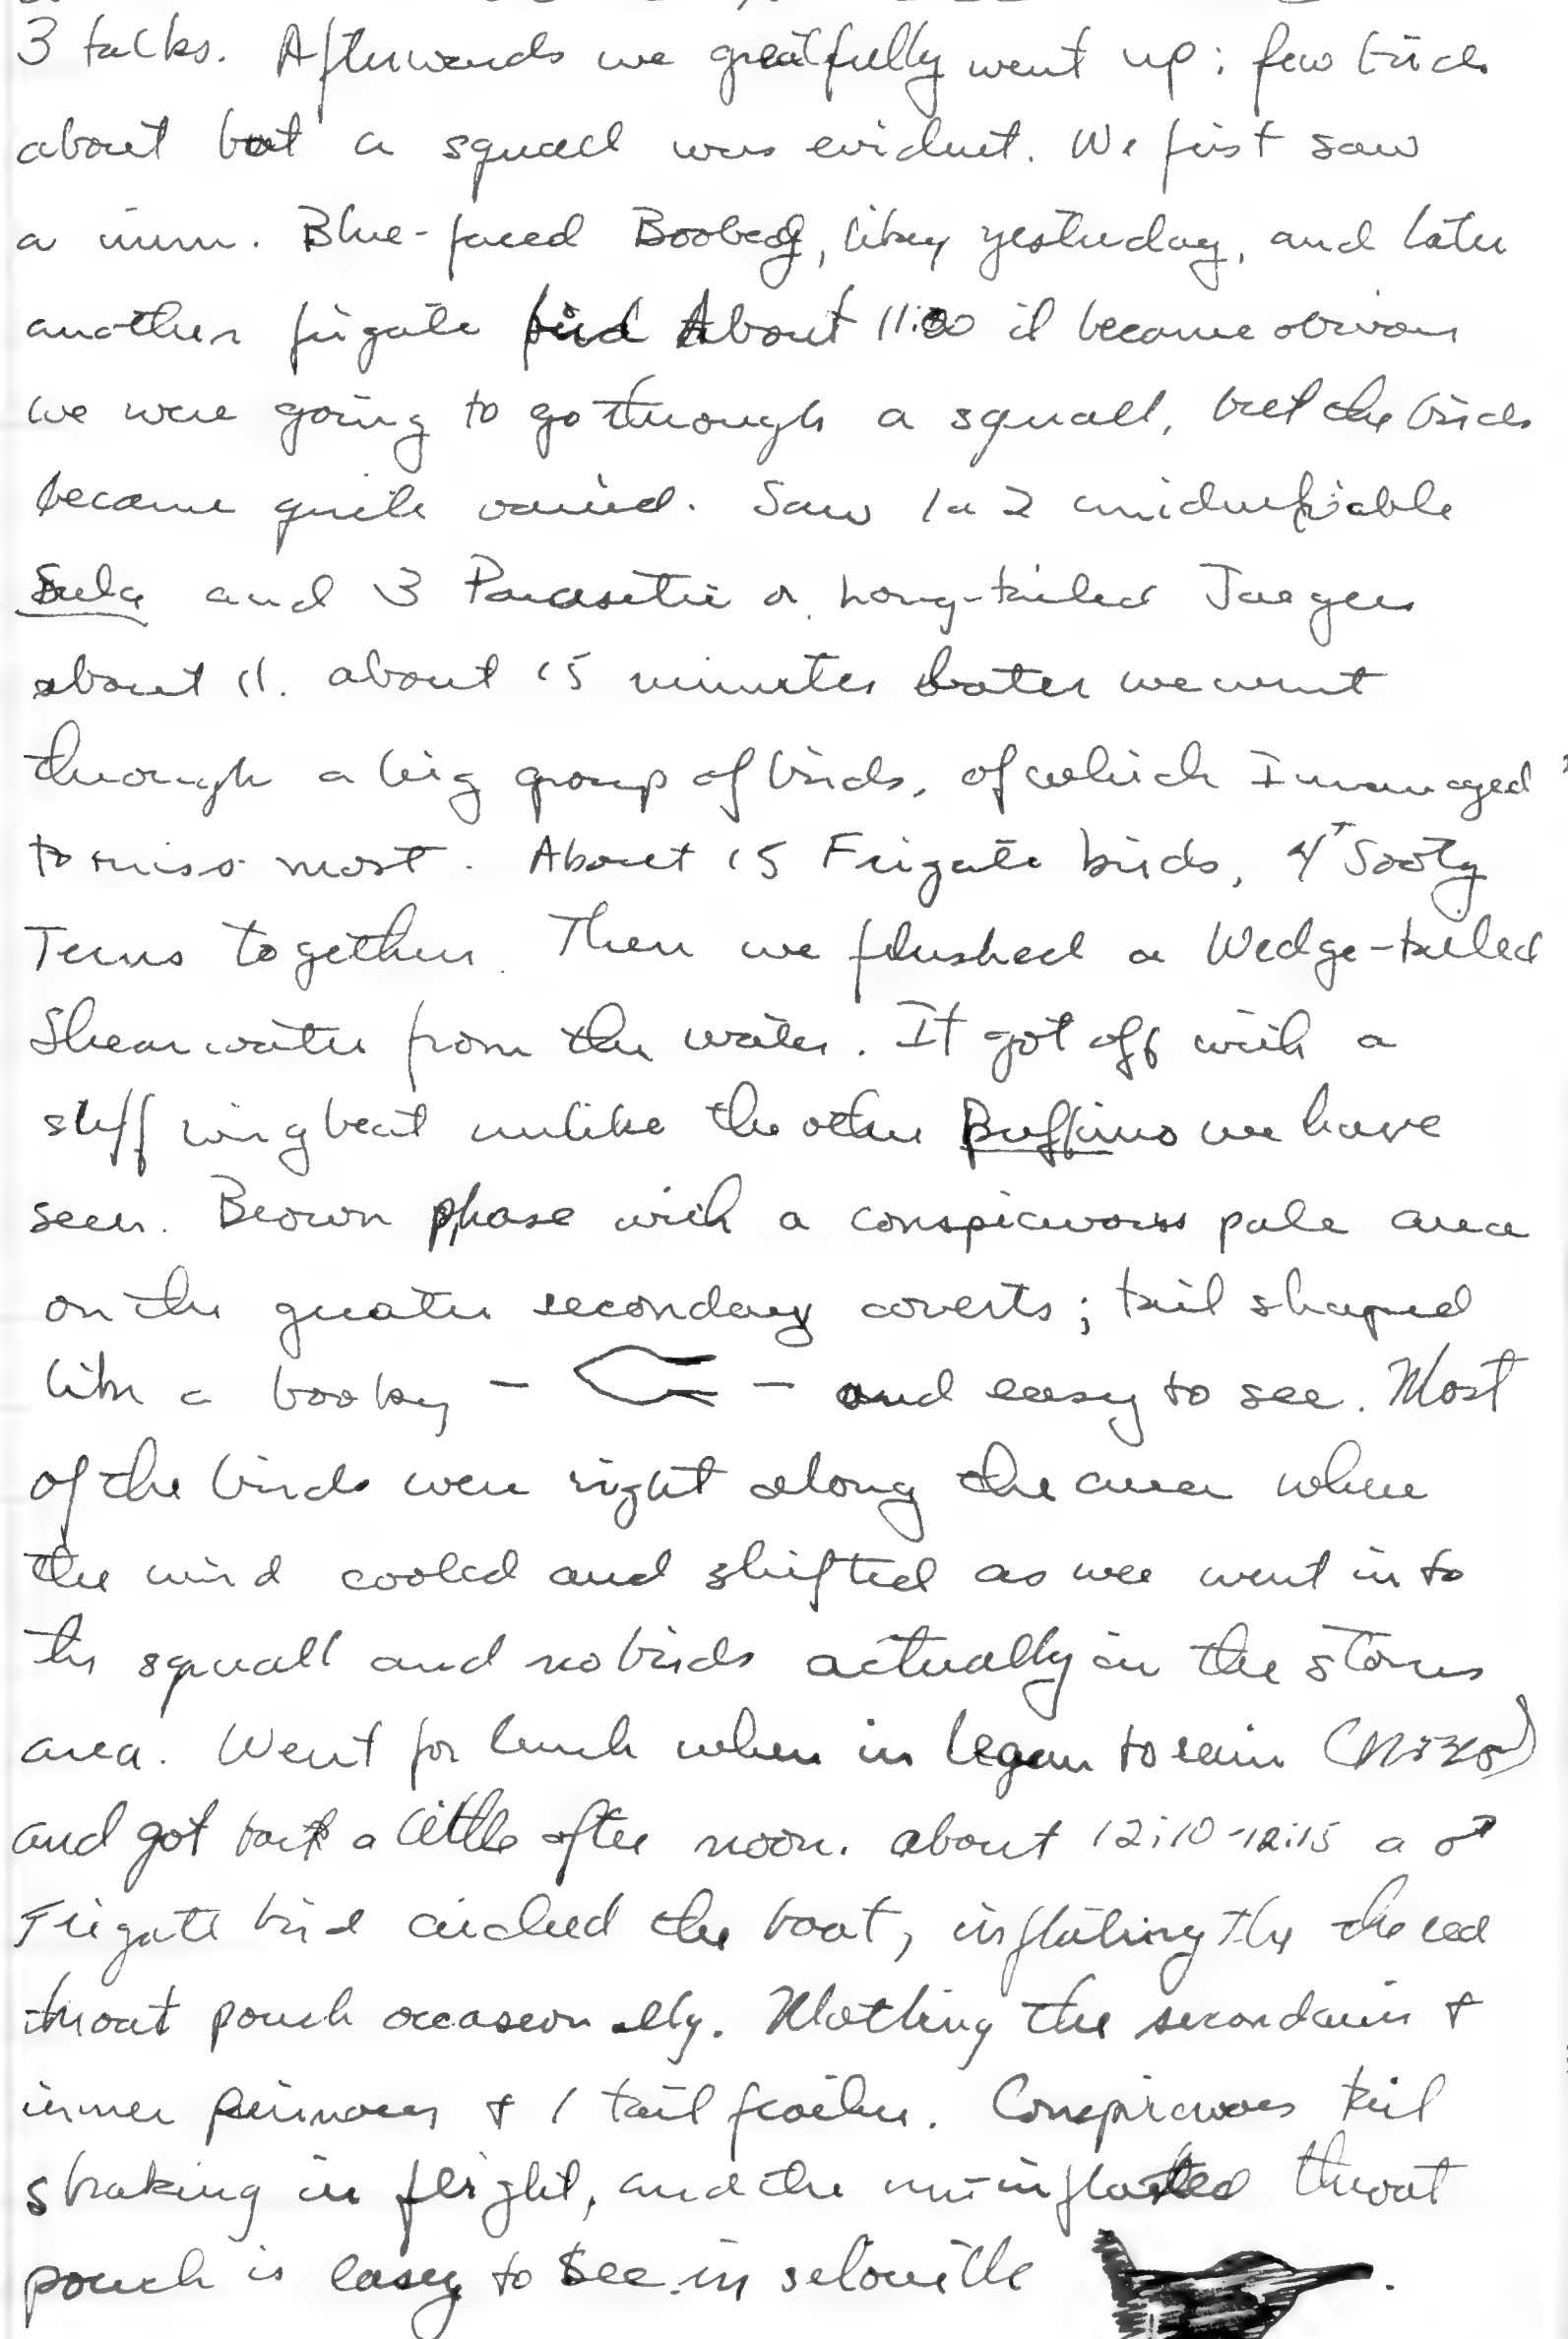 3 talks. Afterwards we greatfully went up; few birds
about but a squall was evident. We first saw
a imm. Blue-faced Booby, likey yesterday, and later
another frigate bird About 11:00 it became obvious
we were going to go through a squall, but the birds
became quite varied. Saw 1 or 2 unidentifiable
Sula and 3 Parasitic or Long-tailed Jaegers
about 11. about 15 minutes later we went
through a big group of birds, of which I managed
to miss most. About 15 Frigate birds, 4 Sooty
Terns together. Then we flushed a Wedge-tailed
Shearwater from the water. It got off with a
stiff wingbeat unlike the other Puffinus we have
seen. Brown phase with a conspicuous pale area
on the greater secondary coverts; tail shaped
like a booby - - and easy to see. Most
of the birds were right along the area where
the wind cooled and shifted as we went into
the squall and no birds actually in the storm
area. Went for lunch when in began to rain
and got back a little after noon. about 12:10-12:15 a ♂
Frigate bird circled the boat, inflating the the red
throat pouch occaseonally. Molting the secondaries +
inner primaries + 1 tail feather. Conspicuous tail
shaking in flight, and the un-inflated throat
pouch is easy to see in silouette .